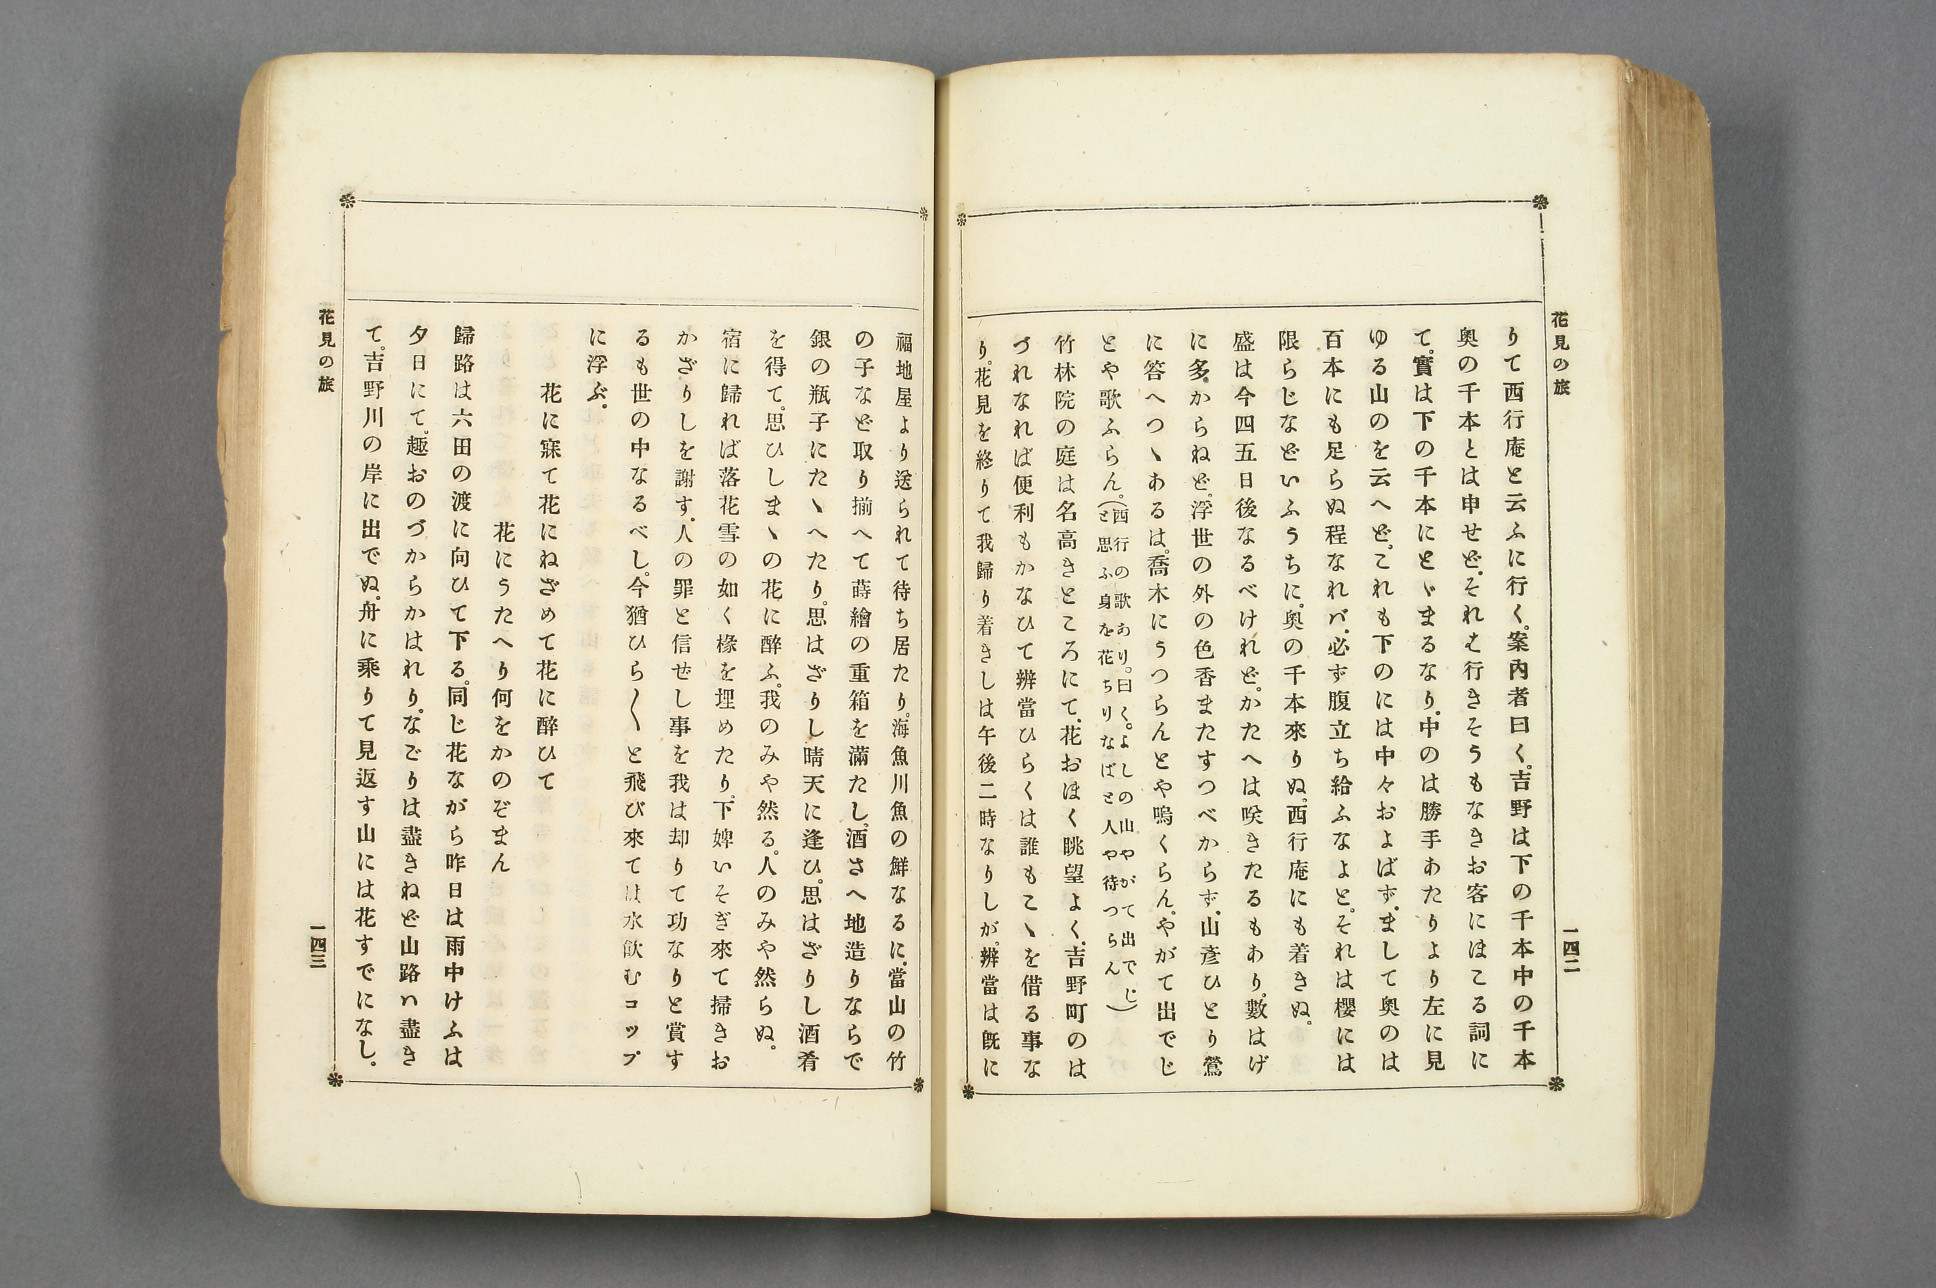 花見の旅
一四二
りて西行庵と云ふに行く。案內者曰く。吉野は下の千本中の千本
奧の千本とは申せど、それも行きそうもなきお客にほこる詞に
て。實は下の千本にとゞまるなり。中のは勝手あたりより左に見
ゆる山のを云へど。これも下のには中々およばず。まして奧のは
百本にも足らぬ程なれバ、必ず腹立ち給ふなよと。それは櫻には
限らじなどいふうちに。奧の千本來りぬ。西行庵にも着きぬ。
盛は今四五日後なるべけれど。かたへは咲きたるもあり。數はげ
に多からねど。浮世の外の色香またすつべからず。山彥ひとり鶯
に答へつゝあるは。喬木にうつらんとや鳴くらん。やがて出でじ
とや歌ふらん。(西行の歌あり。曰く。よしの山やがて出でじ
と思ふ身を花ちりなばと人や待つらん)
竹林院の庭は名高きところにて、花おほく眺望よく。吉野町のは
づれなれば便利もかなひて辨當ひらくは誰もこゝを借る事な
り。花見を終りて我歸り着きしは午後二時なりしが。辨當は旣に
福地屋より送られて待ち居たり。海魚川魚の鮮なるに。當山の竹
の子など取り揃へて蒔繪の重箱を滿たし。酒さへ地造りならで
銀の瓶子にたゝへたり。思はざりし晴天に逢ひ。思はざりし酒肴
を得て。思ひしまゝの花に醉ふ。我のみや然る。人のみや然らぬ。
宿に歸れば落花雪の如く椽を埋めたり。下婢いそぎ來て掃きお
かざりしを謝す。人の罪と信ぜし事を我は却りて功なりと賞す
るも世の中なるべし。今猶ひら〱と飛び來ては水飮むコップ
に浮ぶ。
花に寐て花にねざめて花に醉ひて
花にうたへり何をかのぞまん
歸路は六田の渡に向ひて下る。同じ花ながら昨日は雨中けふは
夕日にて。趣おのづからかはれり。なごりは盡きねど山路ハ盡き
て。吉野川の岸に出でぬ。舟に乘りて見返す山には花すでになし。
花見の旅
一四三